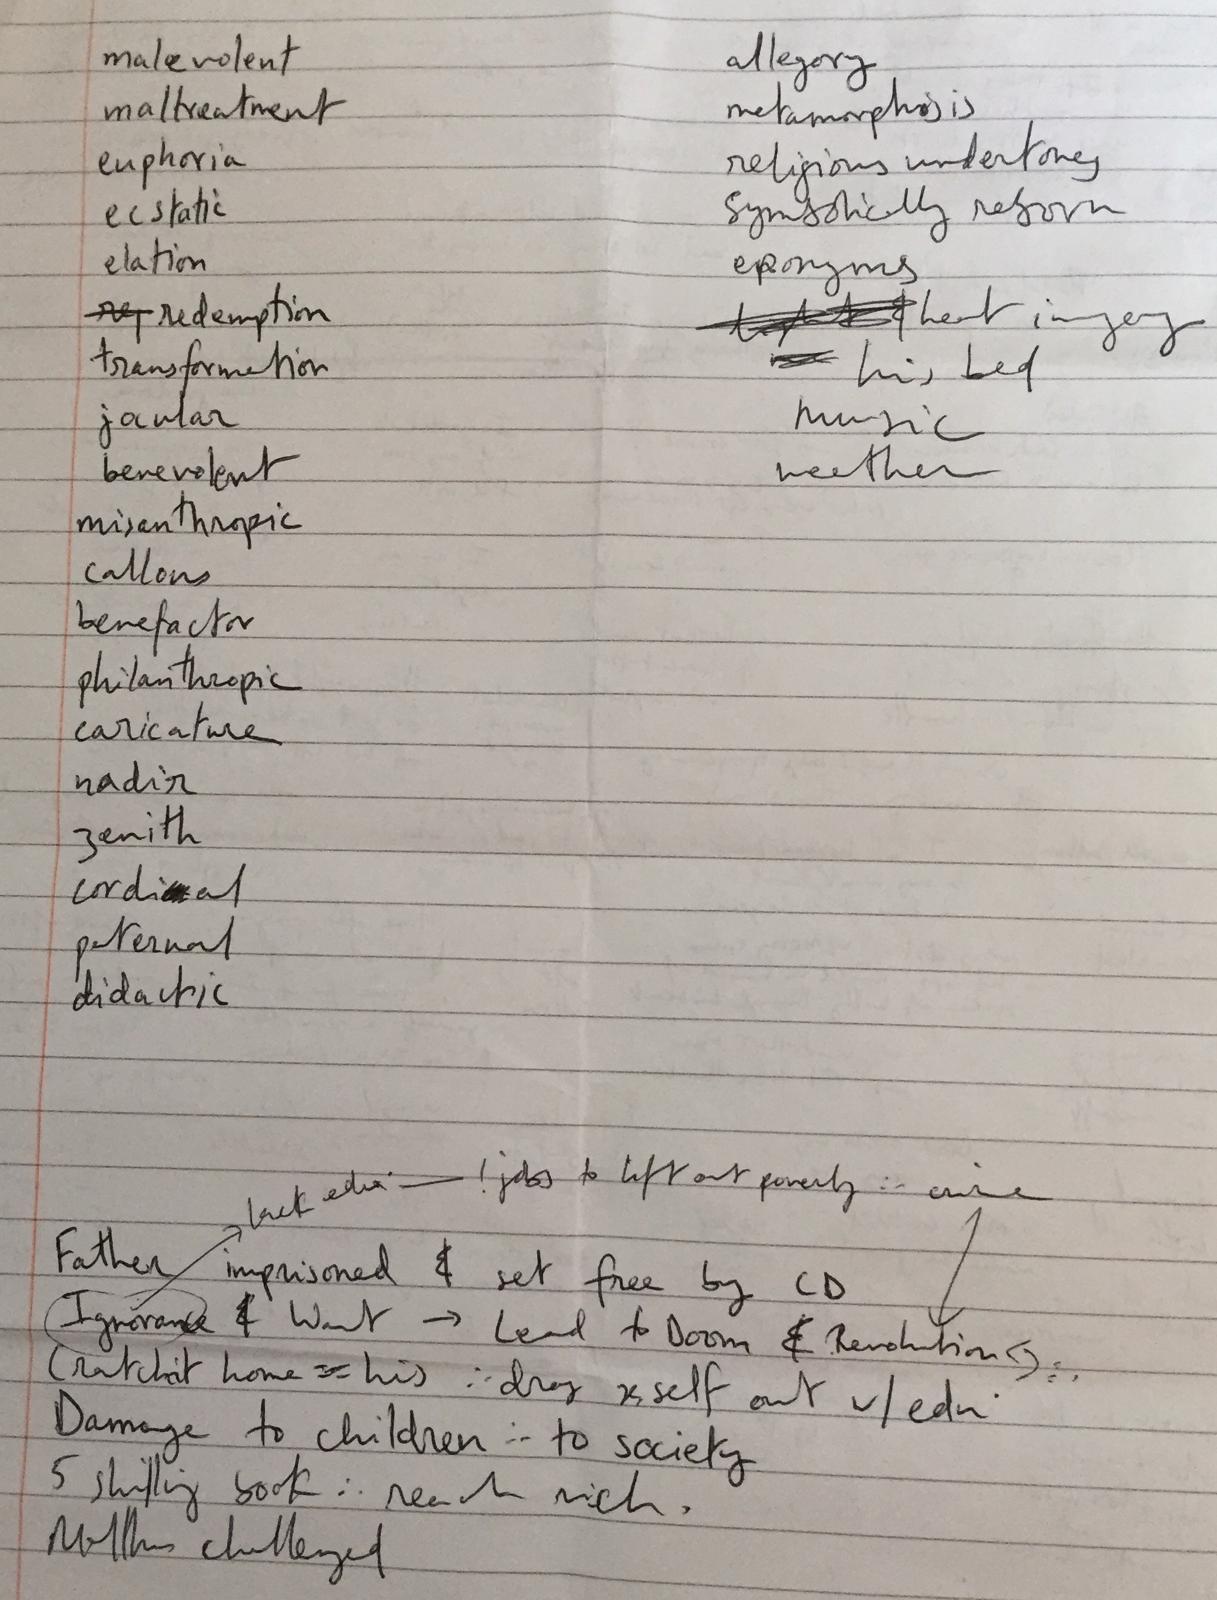 malevolent
maltreatment
euphoria
ecstatic
elation
redemption
transformation
jocular
benevolent
misanthropic
callous
benefactor
philanthropic
caricature
nadir
zenith
cordial
paternal
didactic
allegory
metamorphosis
religious undertones
symbolically reborn
eponyms
heat imagery
his bed
music
weather
lack edu — ! jobs to lift out poverty ∴ crime
Father imprisoned & set free by CD
Ignorance & Want → Lead to Doom & Revolution
Cratchit home = his ∴ drag self out v/edu
Damage to children ∴ to society
5 shilling book ∴ reach rich.
Malthus challenged